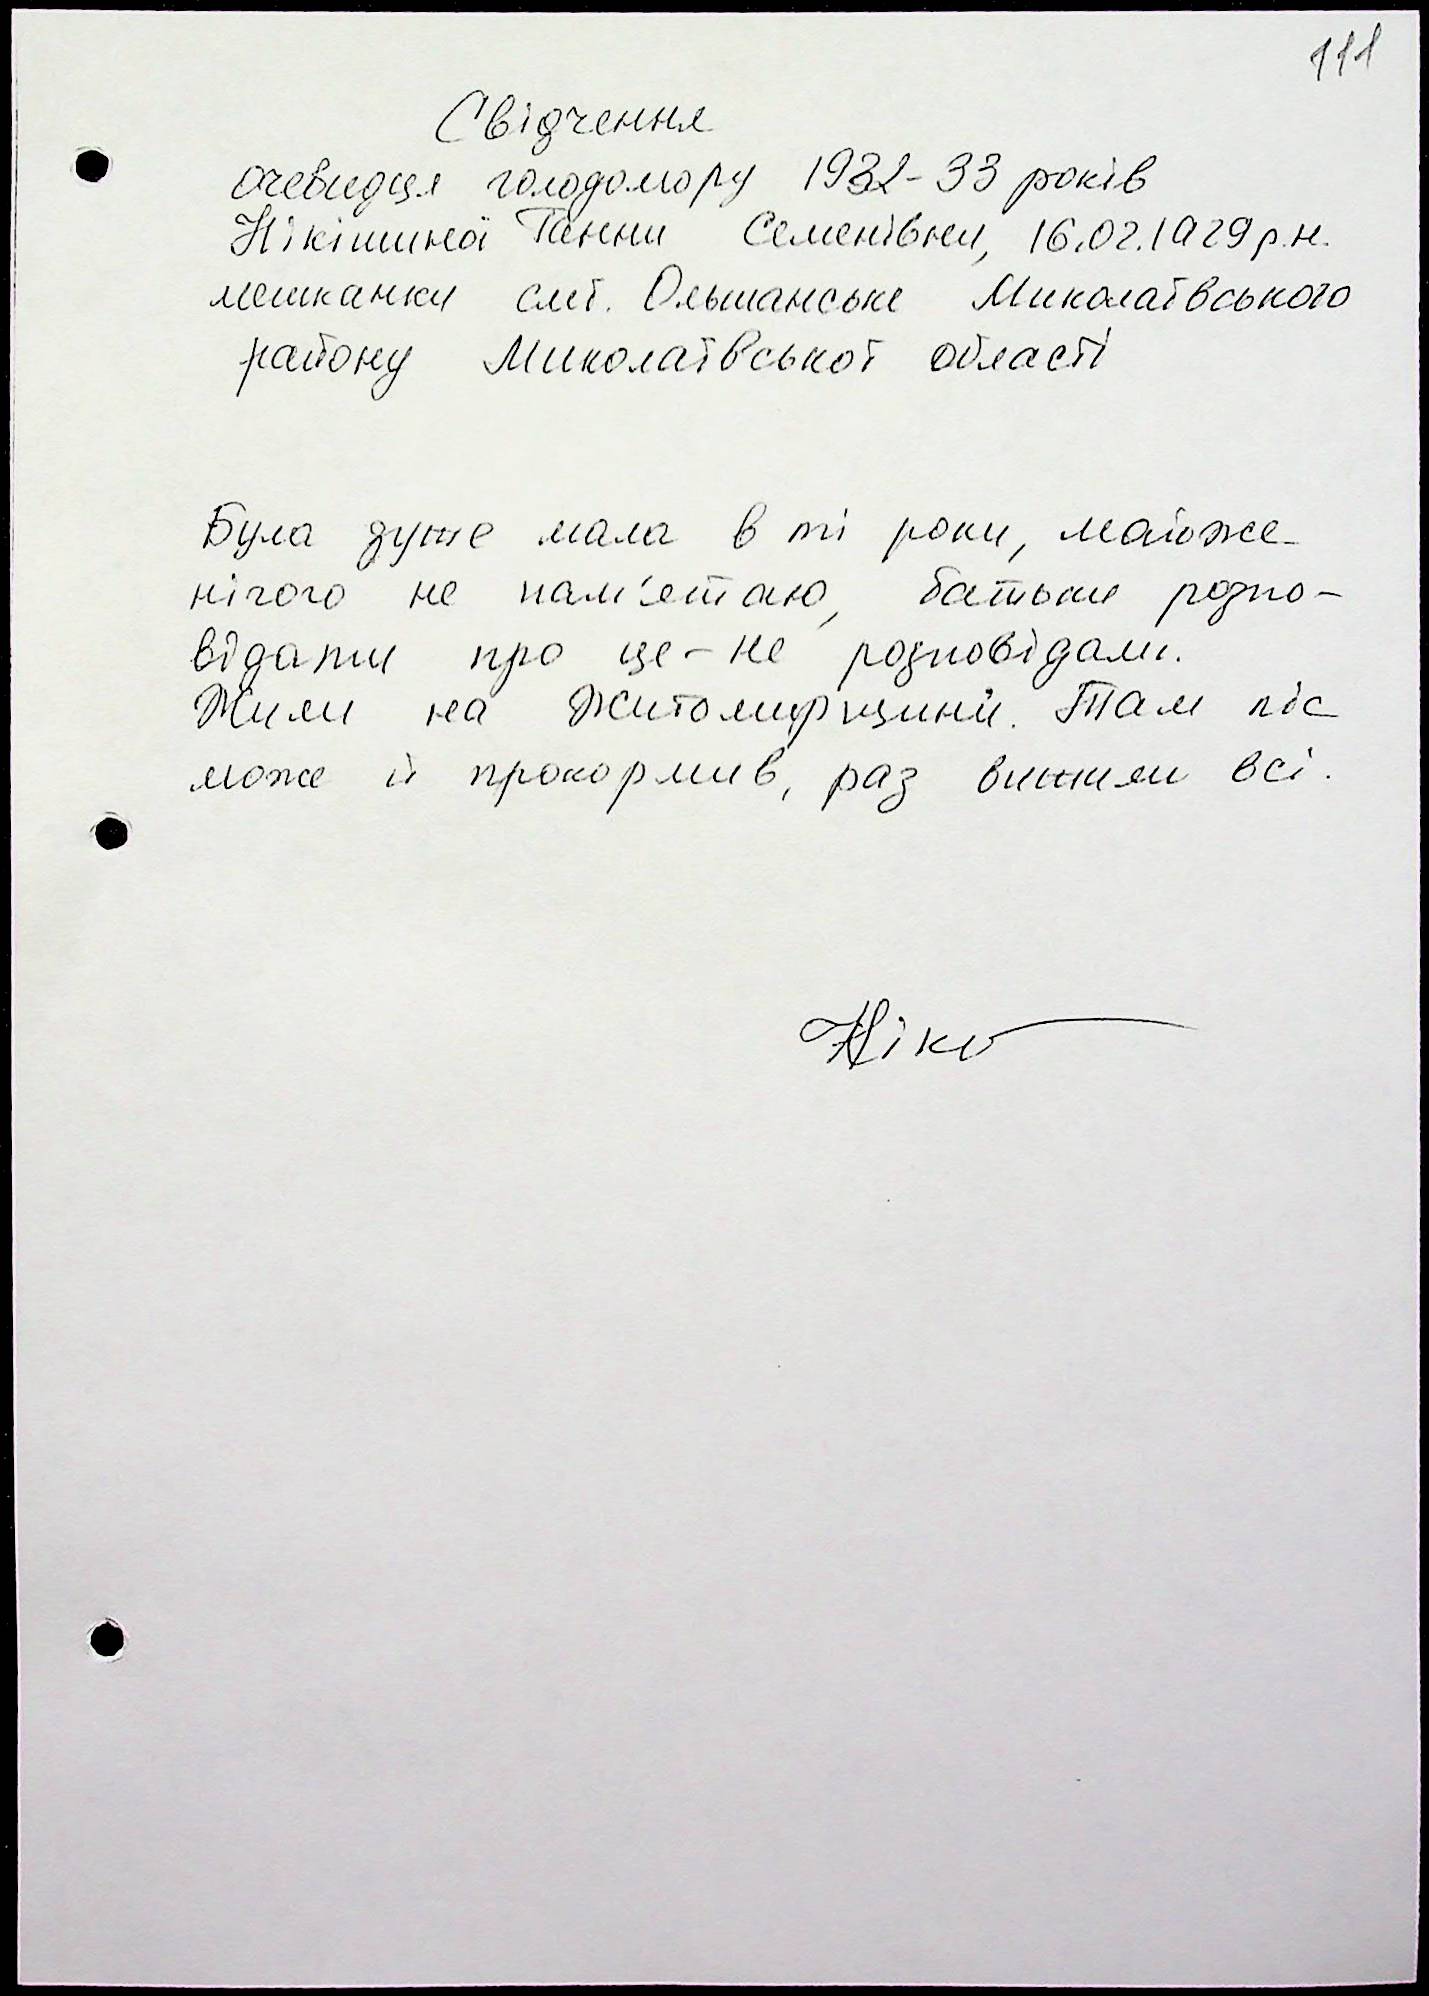 111
Свідчення
очевидця голодомору 1932-33 років
Нікішиної Ганни Семенівни, 16.02.1929 р.н.
мешканки смт. Ольшанське Миколаївського
району Миколаївської області
Була дуже мала в ті роки, майже
нічого не пам'ятаю, батьки розпо-
відати про це - не розповідали.
Жили на Житомирщині. Там ліс
може й прокормив, раз вижили всі.